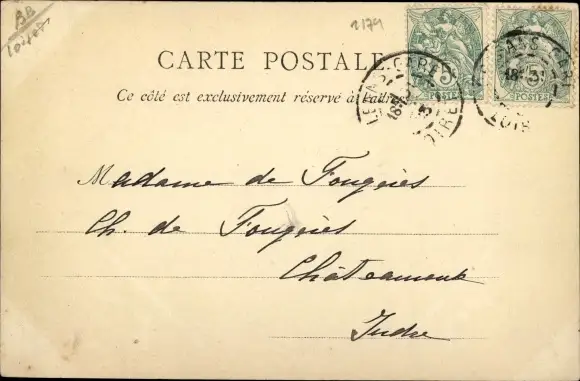 BB
Loiret
2179
CARTE POSTALE
Ce côté est exclusivement réservé à l'adre
5 POSTES
5 POSTES
18
LOIRET
ANS-GARE
18 31
LOIR
Madame de Fougères
Ch. de Fougères
Châteauroux
Indre